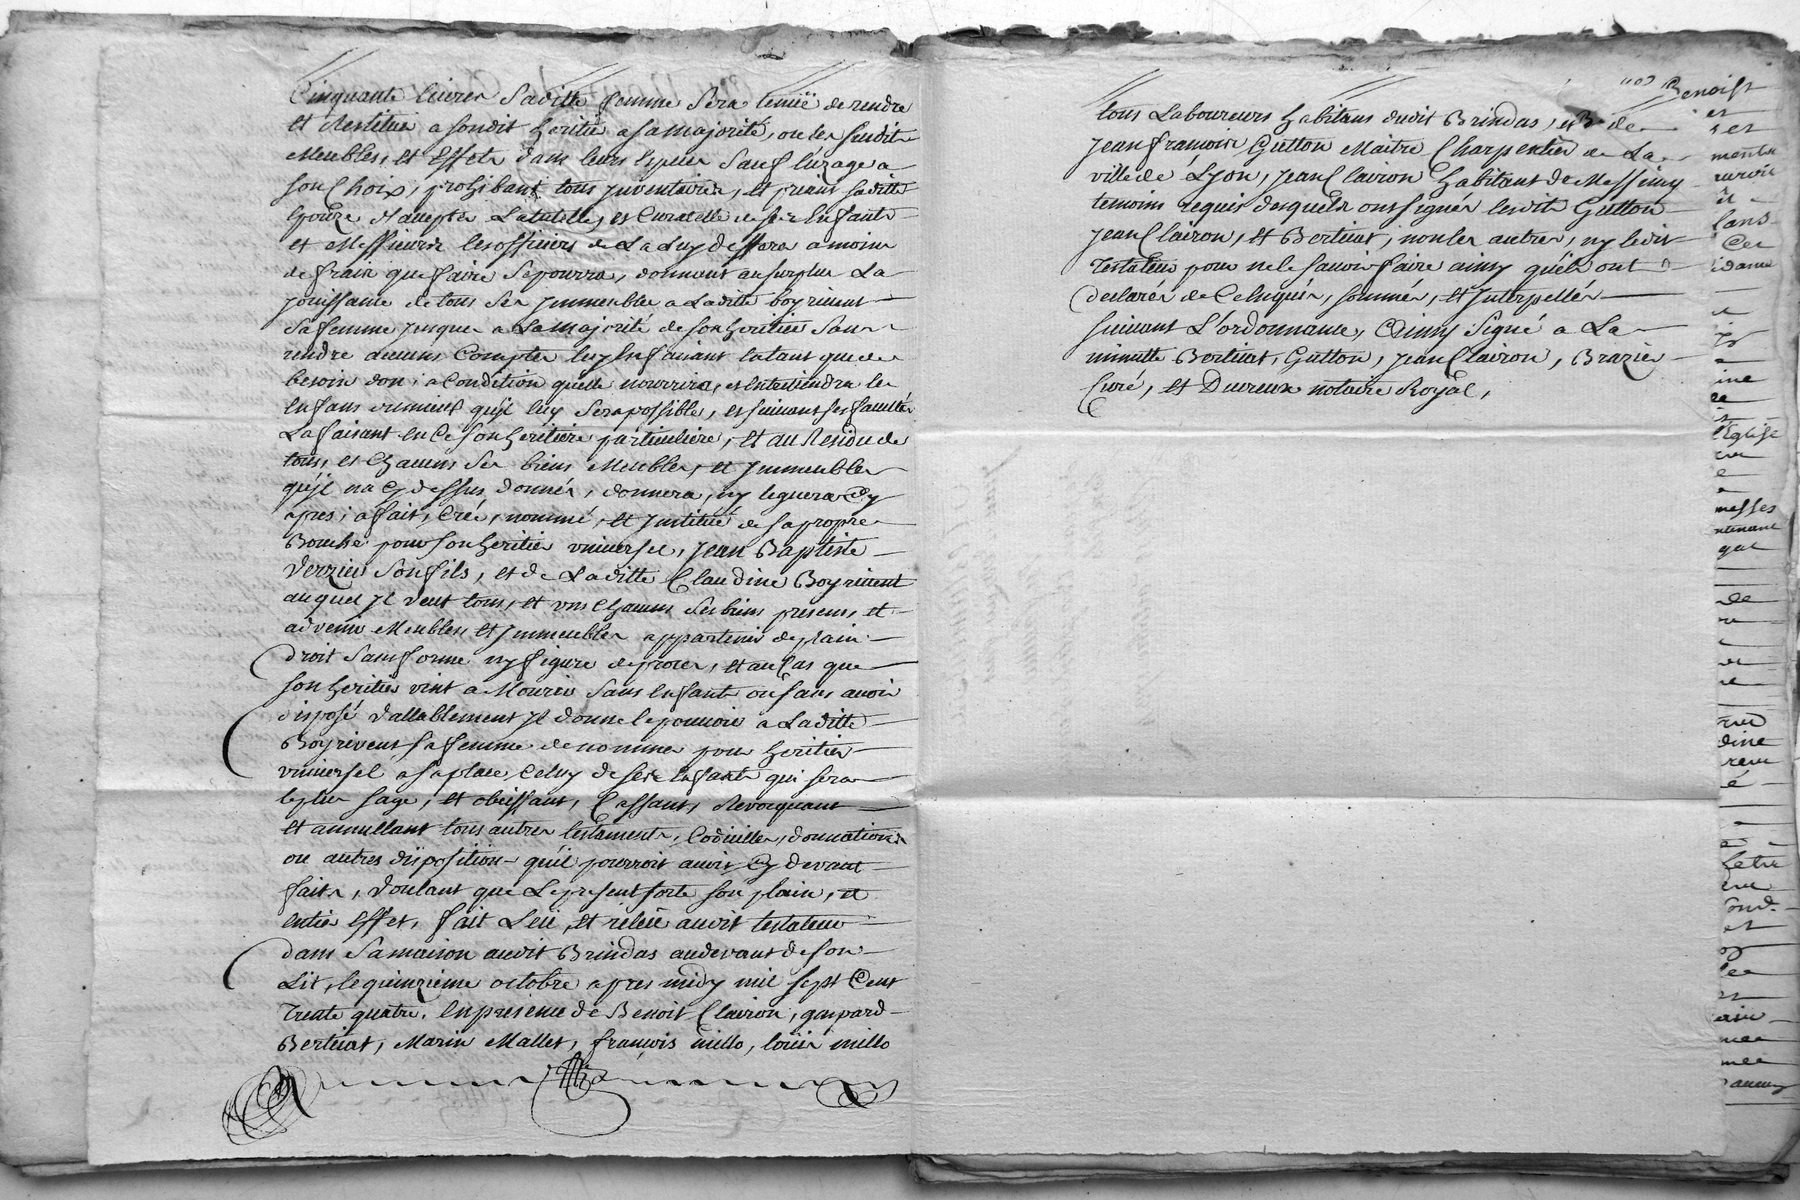 Cinquante livres Sa ditte femme Sera tenuë de rendre
et Restituer a sondit heritier a sa majorité, ou les susdits
Meubles, et Effets dans leurs Espece Sauf l'uzage a
son Choix, prohibant tous Inventaires, et priant sa ditte
Epouze d'accepter La tutelle, et Curatelle de ses Enfants
et Messieurs les officiers de La
de frais que faire Se pourra, donnant au surplus La
jouissance de tous Ses Immeubles a Laditte boyrivent
Sa femme jusques a La majorité de son heritier Sans
rendre aucuns Comptes luy En faisant entant que de
besoin don, a Condition qu'elle nourrira, et Entretiendra les
Enfans du mieux qu'jl luy Sera possible, et suivant ses facultés
La faisant En Ce son heritiere particuliere, et au Residu de
tous, et Chacuns Ses biens Meubles, et Jmmeubles
qu'jl na Cy dessus donnés, donnera, ny leguera Cy
apres, a fait, Créé, nommé, et Jnstitué de sa propre
Bouche pour son heritier universel, Jean Baptiste
Verzieu Son fils, et de Laditte Claudine Boyrivent
auquel Jl veut tous, et uns Chacuns Ses biens presens, et
advenir Meubles et Jmmeubles appartenir de plain
droit Sans forme ny figure de proces, et au Cas que
son heritier vint a Mourir Sans Enfants ou sans avoir
disposé vallablement Jl donne le pouvoir a Laditte
Boyrivent sa femme de nommer pour heritier
universel a sa place, Celuy de ses Enfants qui sera
le plus sage, et obeissant, Cassant, Revocquant
Et annullant tous autres testaments, Codicilles, donnations
ou autres disposition qu'il pourroit avoir Cy devant
faits, Voulant que Le present sorte son plain, et
entier Effet, fait Leü, et releu audit testateur
dans Sa maison audit Brindas au devant de son
Lit, le quinzieme octobre apres midy mil sept Cent
Trente quatre, En presence de Benoit Clairon, gaspard
Bertinat, Marin Mallet, françois millo, loüis millo
tous Laboureurs habitans dudit Brindas, et de
Jean francois Gutton Maitre Charpentier de La
ville de Lyon, Jean Clairon habitant de Messimy
temoins requis desquels ont signés lesdits Gutton
Jean Clairon, et Bertinat, non les autres, ny ledit
Testateur pour ne le sauoir faire ainsy qu'ils ont
declarés de Ce Enquis, sommés, et Interpellés
suivant L'ordonnance, Ainsy Signé a La
minutte Bertinat, Gutton, Jean Clairon, Brazier
Curé, et Duvreux notaire Royal,
Benoist
et
lans
Eglise
messes
que
de
dine